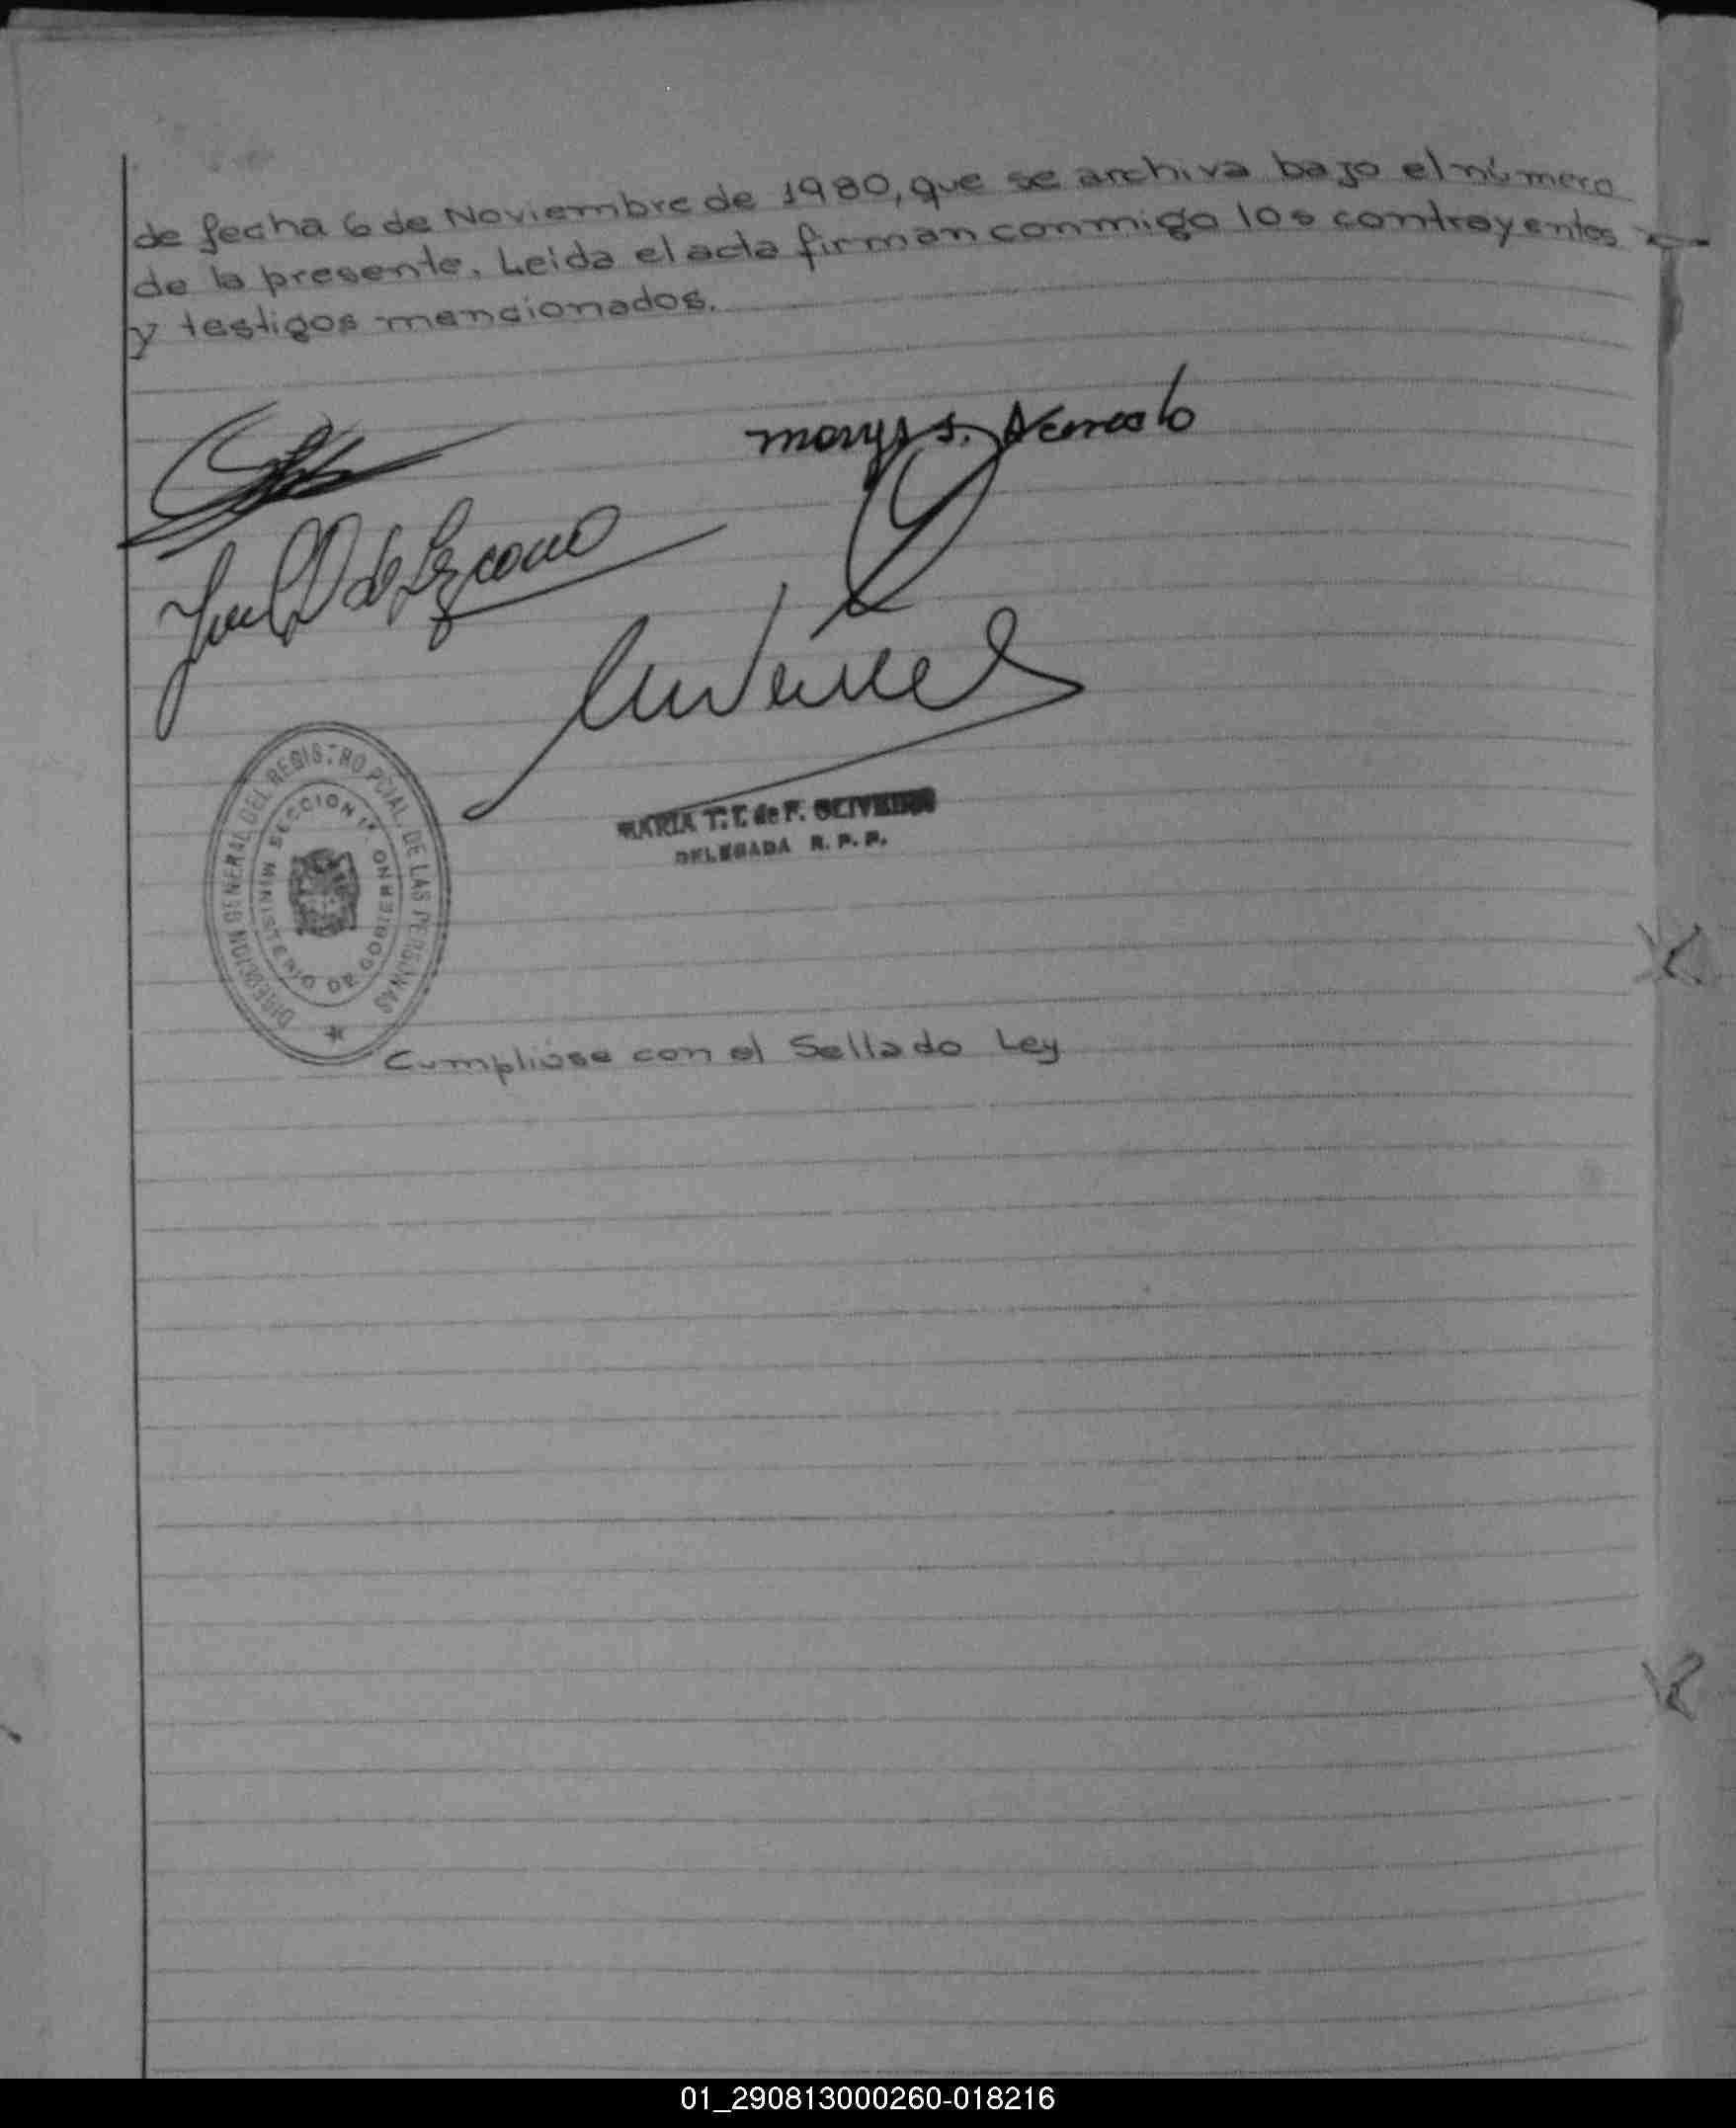 de fecha 6 de Noviembre de 1980, que se archiva bajo el número
de la presente. Leida el acta firman conmigo los contrayentes
y testigos mencionados.
DIRECCION GENERAL DEL REGISTRO PCIAL DE LAS PERSONAS
SECCION 1ª
MINISTERIO DE GOBIERNO
MARIA T. de F.
DELEGADA R. P. P.
Cumplióse con el Sellado Ley
01_290813000260-018216